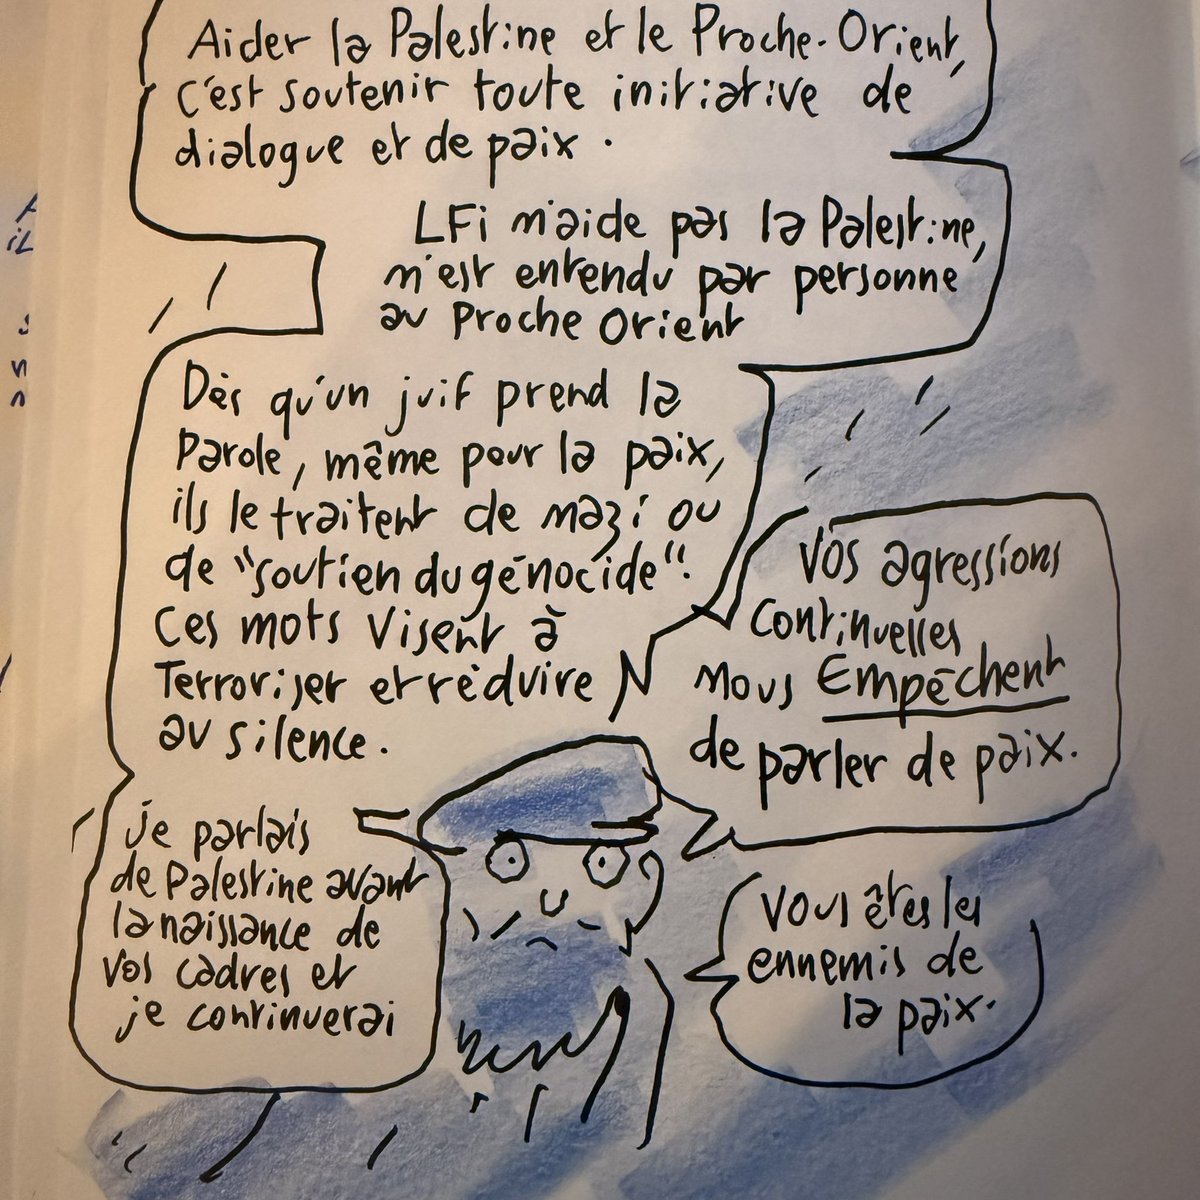 Aider la Palestine et le Proche-Orient,
c'est soutenir toute initiative de
dialogue et de paix.
LFi n'aide pas la Palestine,
n'est entendu par personne
au Proche Orient
Dès qu'un juif prend la
Parole, même pour la paix,
ils le traitent de nazi ou
de "soutien du génocide".
Ces mots visent à
Terroriser et réduire
au silence.
Vos agressions
continuelles
Nous Empêchent
de parler de paix.
je parlais
de Palestine avant
la naissance de
vos cadres et
je continuerai
Vous êtes les
ennemis de
la paix.